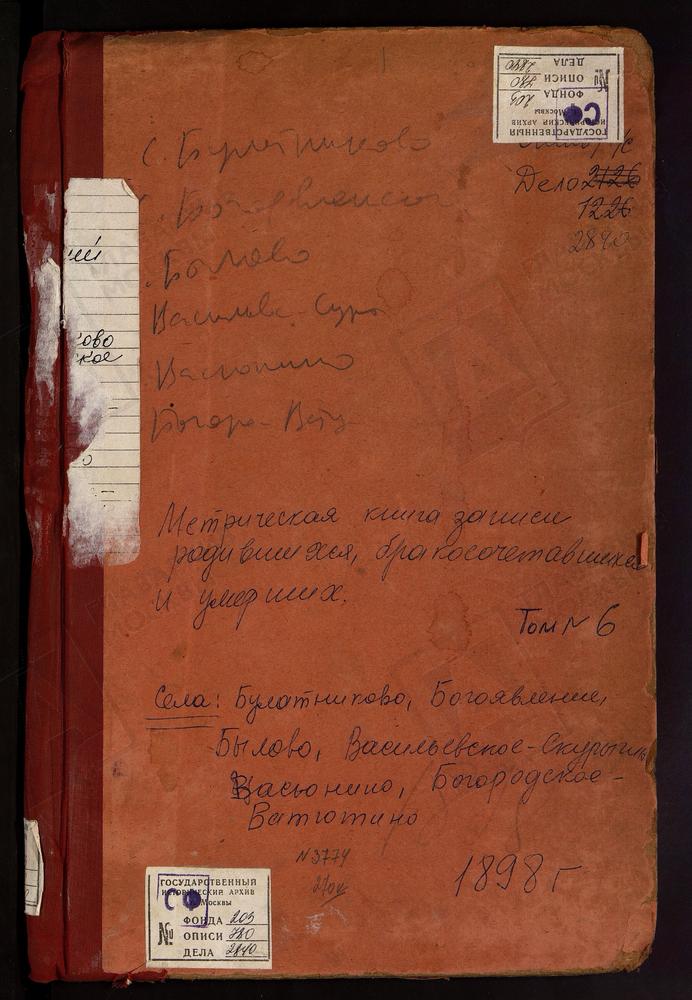 ГОСУДАРСТВЕННЫЙ
ИСТОРИЧЕСКИЙ АРХИВ
Москвы
СФ
ФОНДА 203
№ ОПИСИ 780
ДЕЛА 2840
Дело 2126
1226
2840
С. Булатниково
Богоявленское
Былово
Васильев.-Скур
Васюнино
Богоро-Вату
ий
ово
кое
о
Метрическая книга записи
родившихся, бракосочетавшихся
и умерших.
Том N 6
Села: Булатниково, Богоявление,
Былово, Васильевское-Скурыгин
Васюнино, Богородское-
Ватютино
N 3774
1898 г
ГОСУДАРСТВЕННЫЙ
ИСТОРИЧЕСКИЙ АРХИВ
Москвы
СФ
ФОНДА 203
№ ОПИСИ 780
ДЕЛА 2840